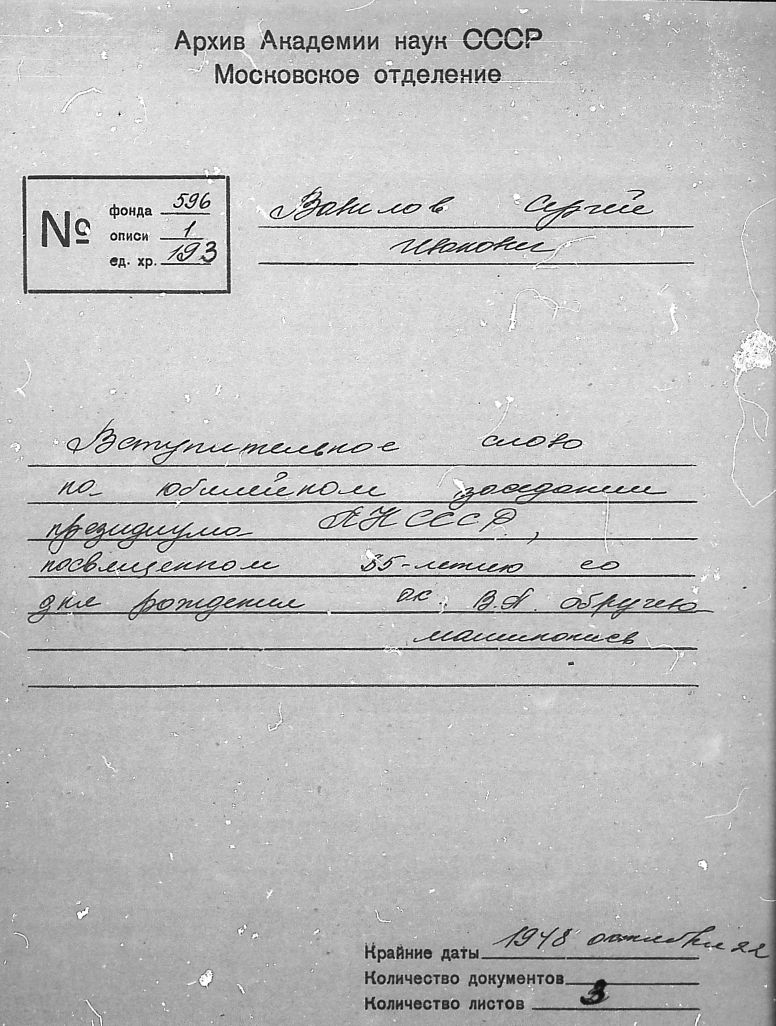 Архив Академии наук СССР
Московское отделение
№
фонда 596
описи 1
ед. хр. 193
Вавилов Сергей
Иванович
Вступительное слово
на юбилейном заседании
президиума АН СССР,
посвященном 85-летию со
дня рождения ак. В.А. Обручева
машинопись
Крайние даты 1948 октября 22
Количество документов
Количество листов 3